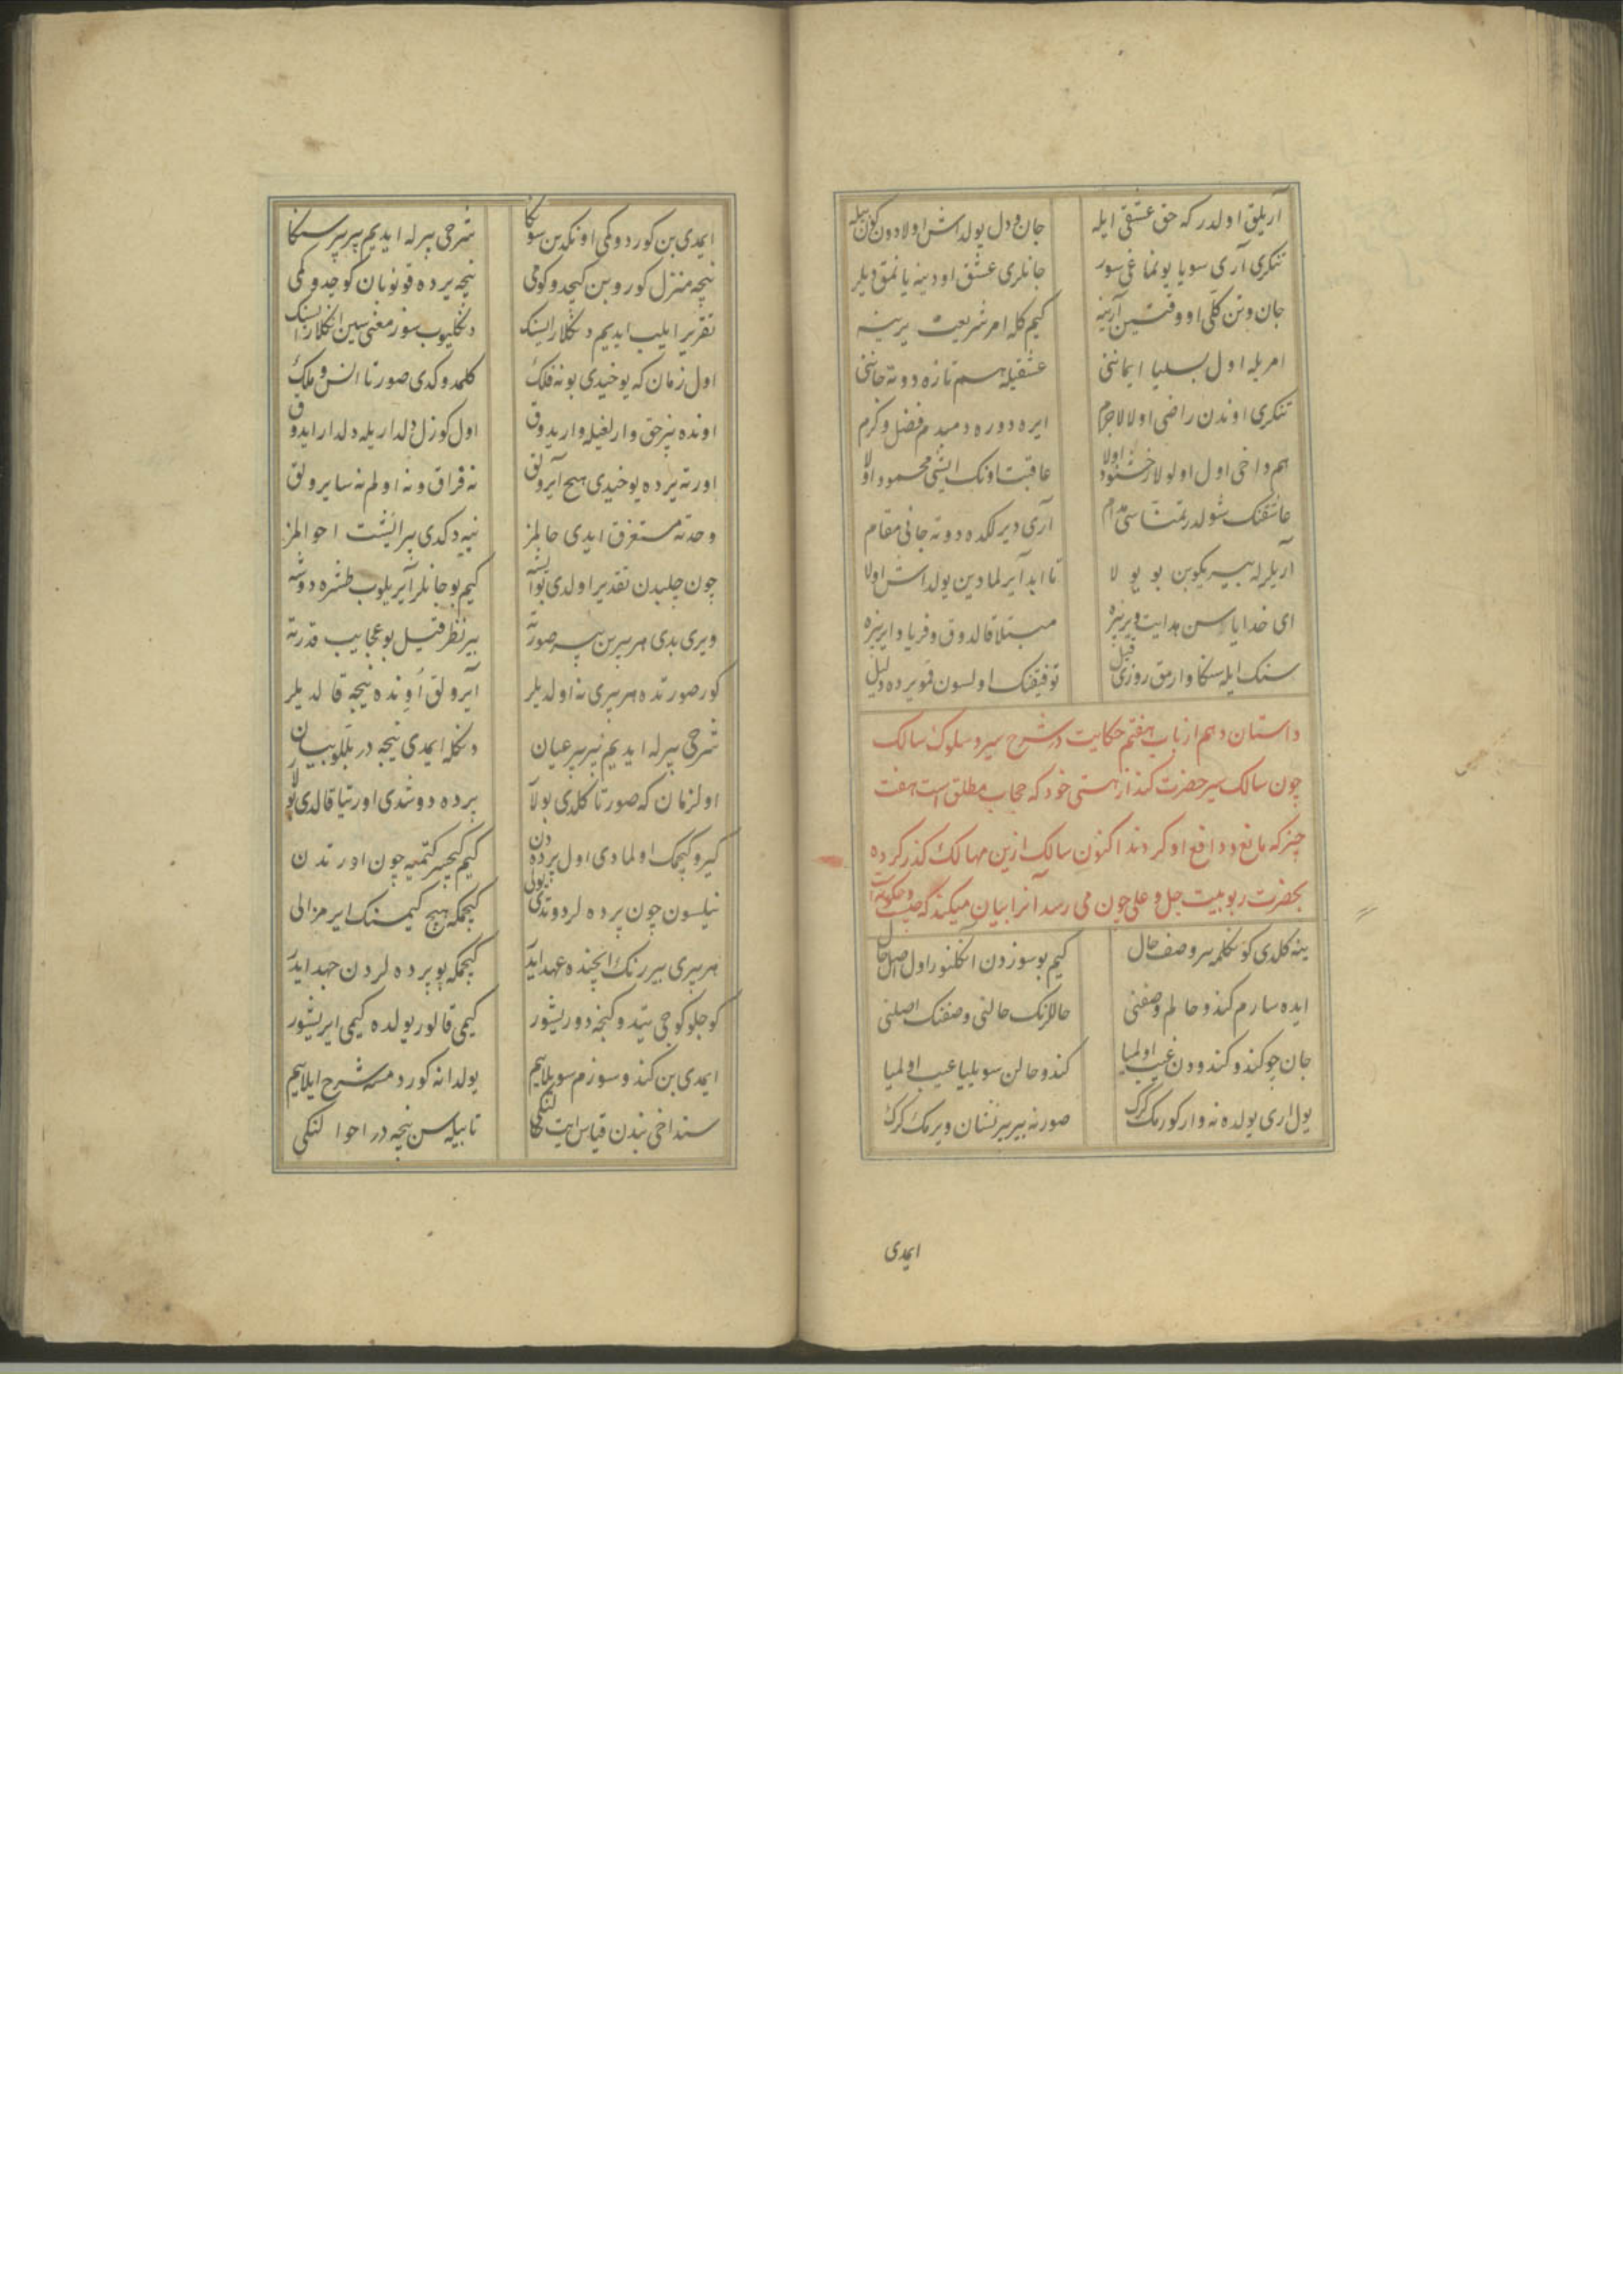 آریلق اولدر که حق عشقی ایله جان و دل یولداش اولا دون کون بیله
تنکری آری سویا یونماغی سور جانلری عشق اودینه یانمق دیلر
جان و تن کلی او وقتین آرینه کیم کله امر شریعت یرینه
امریله اول بسلیا ایماننی عشقیله هم تازه دوته جاننی
تنکری اوندن راضی اولا لاجرم ایره دوره دمبدم فضل و کرم
هم داخی اول اولولار خشنود اولا عاقبت اونک ایشی محمود اولا
عاشقنک شولدر تمناسی مدام آری دیرلکده دوته جانی مقام
آریلرله بیریکوبن بو یولا تا ابد آیرلمادین یولداش اولا
ای خدایا سن هدایت ویر بزه مبتلا قالدوق و فریاد ایر بزه
سنک ایله سنکا وارمق روزی قیل توفیقنک اولسون قمو یرده دلیل
داستان دهم از باب هفتم حکایت در شرح سیر و سلوک سالک
چون سالک سیر حضرت کند از هستی خود که حجاب مطلق است هفت
چیز که مانع و دافع او کردند اکنون سالک ازین مهالک کذر کرده
بحضرت ربوبیت جل و علی چون می رسد آنرا بیان میکند که
ینه کلدی کونکلمه سر وصف حال کیم بو سوزدن انکلنور اول اصل حال
ایده سارم کندو حالم وصفنی حاللرنک حالنی وصفنک اصلنی
جان چو کندو کندودن غیب اولمیا کندو حالن سویلیا عیب اولمیا
یول اری یولده نه وار کورمک کرک صورنه بیر بیر نشان ویرمک کرک
ایمدی
ایمدی بن کوردوکمی اونکدین سونکا شرحی بیرله ایدیم بیر بیر سنکا
نیچه منزل کوروبن کیچدوکومی نیچه یرده قونوبان کوچدوکمی
تقریر ایلیب ایدیم دنکلارایسنک دنکلیوب سوز معنی سین انکلارایسنک
اول زمان که یوخیدی بو نه فلک کلمدوکدی صورتا انس و ملک
اونده بیز حق وارلغیله واریدوق اول کوزل دلداریله دلدار ایدوق
اورته یرده یوخیدی هیچ آیرولق نه فراق و نه اولم نه سایرولق
وحدته مستغرق ایدی حالمز نیه دکدی بیر ایشت احوالمز
چون چلبدن تقدیر اولدی بو ایشه کیم بو جانلر آیریلوب طشره دوشه
ویری بدی هر بیرین بیر صورته بیر نظر قیل بو عجایب قدرته
کور صورتده هر بیری نه اولدیلر آیرولق اونده نیجه قالدیلر
شرحی بیرله ایدیم بیر بیر عیان دنکله ایمدی نیجه در بللو بیان
اولزمان که صورتا کلدی بولا پرده دوشدی اورتیا قالدی
کیرو کیچمک اولمادی اول پرده دن کیم کیچیسر کتمیه چون اورتدن
نیلسون چون پرده لر دوتدی یولی کیچمکه هیچ کیمسنک ایرمز الی
هر بیری بیر رنک ایچنده عهد ایدر کیچمکه بو پرده لردن جهد ایدر
کوجلو کوجی یتدوکنجه دوریشور کیمی قالور یولده کیمی ایریشور
ایمدی بن کندو سوزم سویلایم یولدا نه کوردمسه شرح ایلایم
سنداخی بندن قیاس ایت تا بیله سن نیجه در احوالنکی